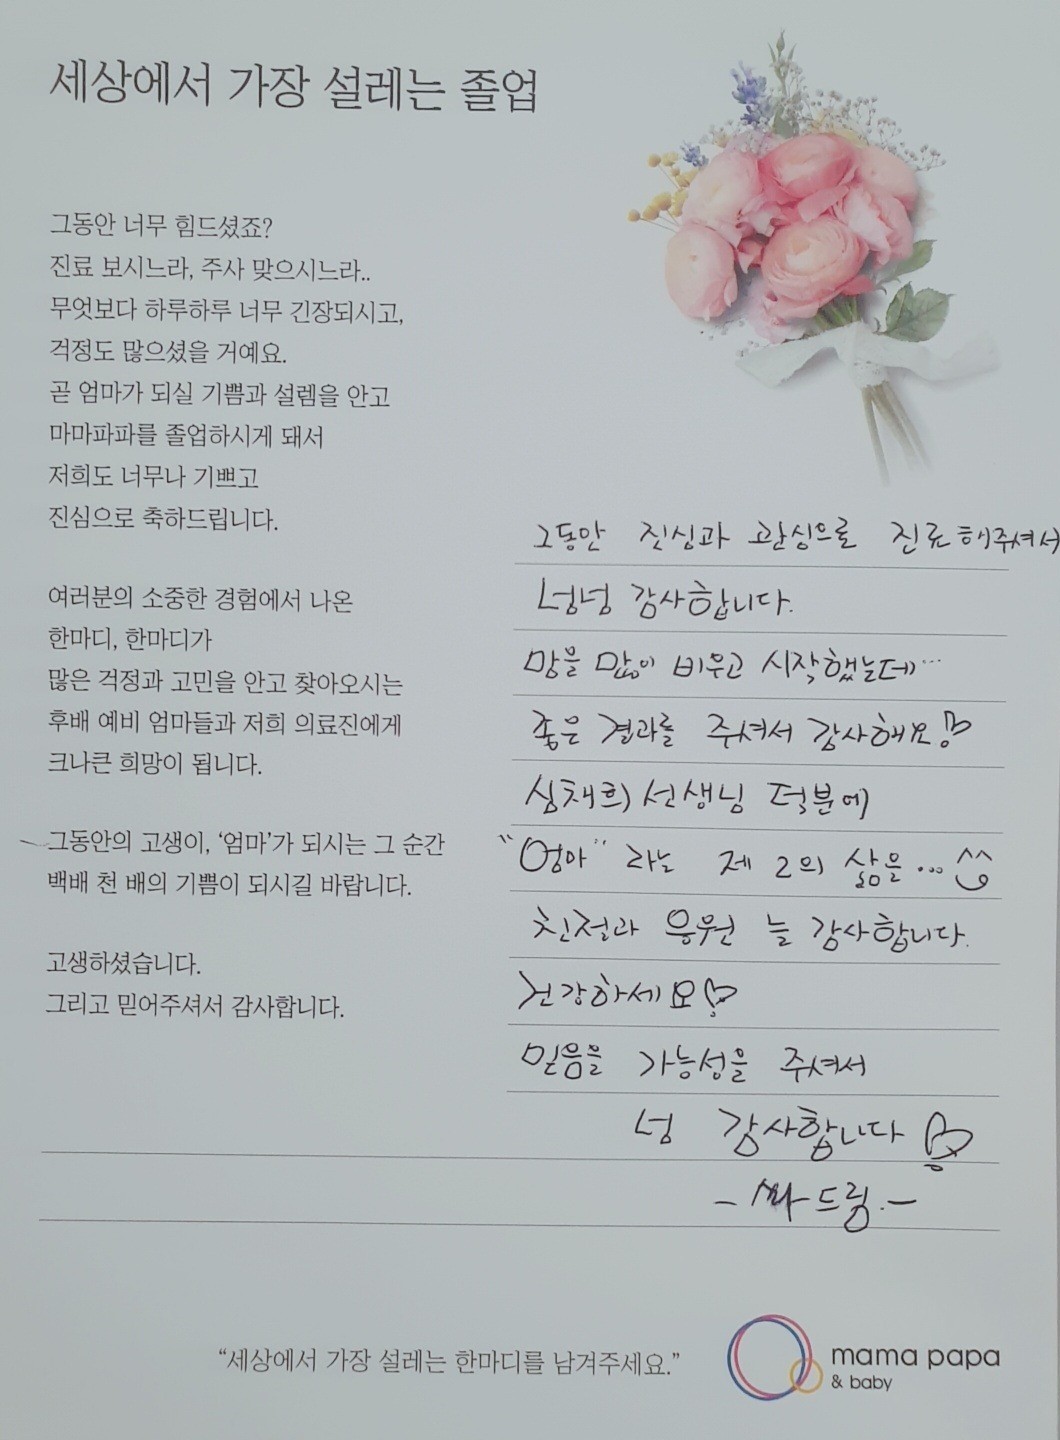 세상에서 가장 설레는 졸업
그동안 너무 힘드셨죠?
진료 보시느라, 주사 맞으시느라..
무엇보다 하루하루 너무 긴장되시고,
걱정도 많으셨을 거예요.
곧 엄마가 되실 기쁨과 설렘을 안고
마마파파를 졸업하시게 돼서
저희도 너무나 기쁘고
진심으로 축하드립니다.
여러분의 소중한 경험에서 나온
한마디, 한마디가
많은 걱정과 고민을 안고 찾아오시는
후배 예비 엄마들과 저희 의료진에게
크나큰 희망이 됩니다.
그동안의 고생이, '엄마'가 되시는 그 순간
백배 천 배의 기쁨이 되시길 바랍니다.
고생하셨습니다.
그리고 믿어주셔서 감사합니다.
그동안 진심과 관심으로 진료해주셔서
넘넘 감사합니다.
맘을 많이 비우고 시작했는데...
좋은 결과를 주셔서 감사해요
심채희 선생님 덕분에
"엄마" 라는 제 2의 삶을... ^^
친절과 응원 늘 감사합니다.
건강하세요
믿음을 가능성을 주셔서
넘 감사합니다
드림.-
"세상에서 가장 설레는 한마디를 남겨주세요."
mama papa
& baby